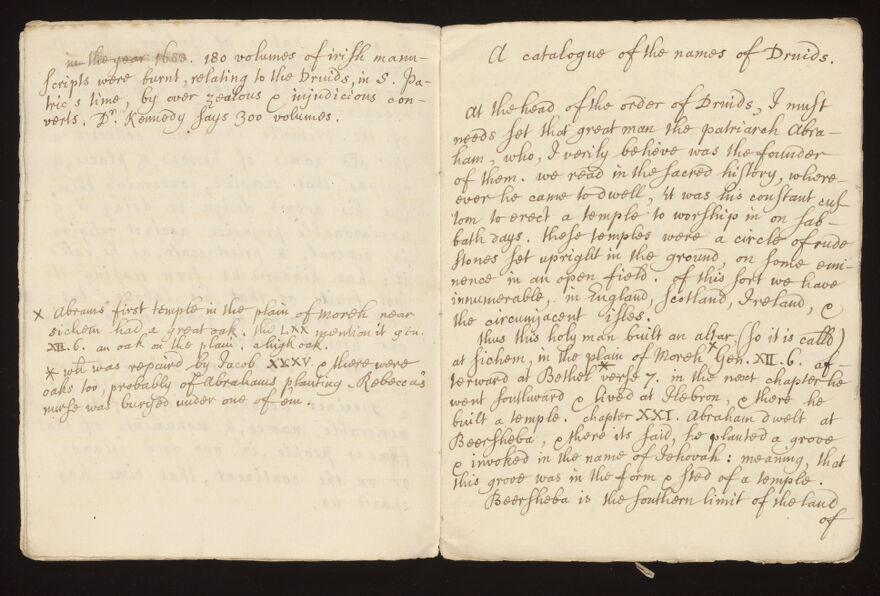 in the year 1683. 180 volumes of irish manu-
scripts were burnt, relating to the Druids, in S. Pa-
tric's time, by over zealous & injudicious con-
verts. Dr. Kennedy says 300 volumes.
x Abrams first temple in the plain of Moreh near
sichem had a great oak. the LXX mention it gen.
XII. 6. an oak on the plain. a high oak.
* wh. was repaird by Jacob XXXV. & there were
oaks too, probably of Abrahams planting. Rebecca's
nurse was buryed under one of 'em.
A catalogue of the names of Druids.
At the head of the order of Druids, I must
needs set that great man the patriarch Abra-
ham, who, I verily believe was the founder
of them. we read in the sacred history, where-
ever he came to dwell, it was his constant cus
tom to erect a temple to worship in on sab-
bath days. these temples were a circle of rude
stones set upright in the ground, on some emi-
nence in an open field. of this sort we have
innumerable, in England, Scotland, Ireland, &
the circumjacent isles.
thus this holy man built an altar (so it is calld)
at Sichem, in the plain of Moreh x Gen. XII. 6. af-
terward at Bethel * verse 7. in the next chapter he
went southward & lived at Hebron, & there he
built a temple. chapter XXI. Abraham dwelt at
Beersheba, & there its said, he planted a grove
& invoked in the name of Jehovah: meaning, that
this grove was in the form & sted of a temple.
Beersheba is the southern limit of the land
of